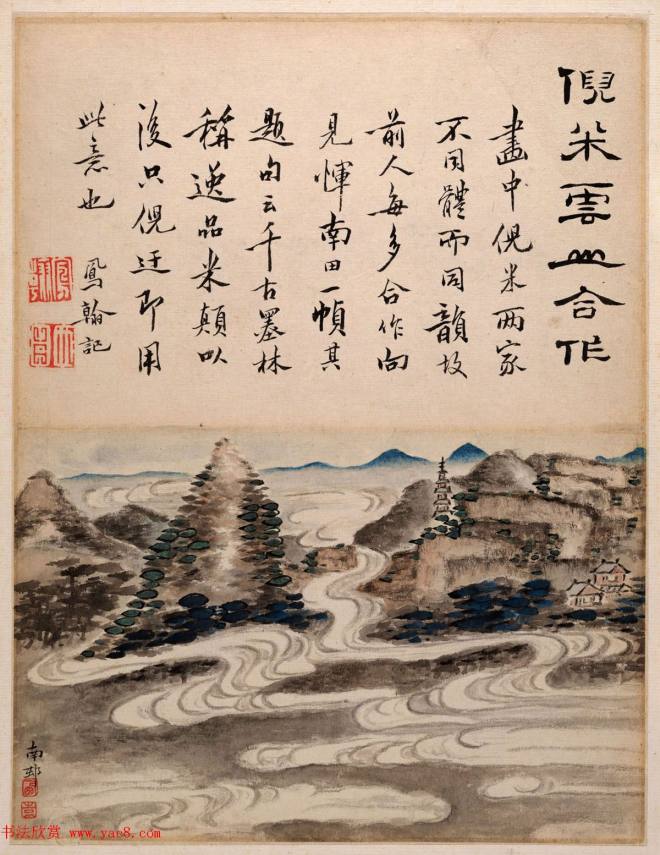 倪米雲山合作
畫中倪米两家
不同體而同韻故
前人每多合作向
見惲南田一幀其
題句云千古墨林
稱逸品米顛以
後只倪迂即用
此意也
鳳翰記
南邨
书法欣赏 www.yac8.com